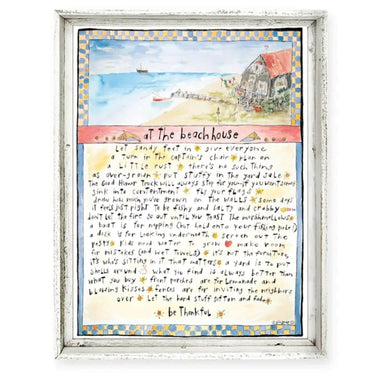 at the beach house
Let sandy feet in give everyone
a turn in the captain's chair plan on
a little rust there's no such thing
as over-grown put stuffy in the yard sale
The Good Humor Truck will always stop for you if you want it enough
sink into contentment fly your flags
show how much you've grown on the walls some days
it feels just right to be fishy and salty and crabby
don't let the fire go out until you toast the marshmallows
a boat is for napping (but hold onto your fishing pole!)
a dock is for looking underneath screen out the
pests kids need water to grow make room
for mistakes (and wet towels) it's not the furniture,
it's who's sitting in it that matters a yard is to put
shells around what you find is always better than
what you buy front porches are for lemonade and
blowing kisses fences are for inviting the neighbors
over let the hard stuff soften and fade
be thankful